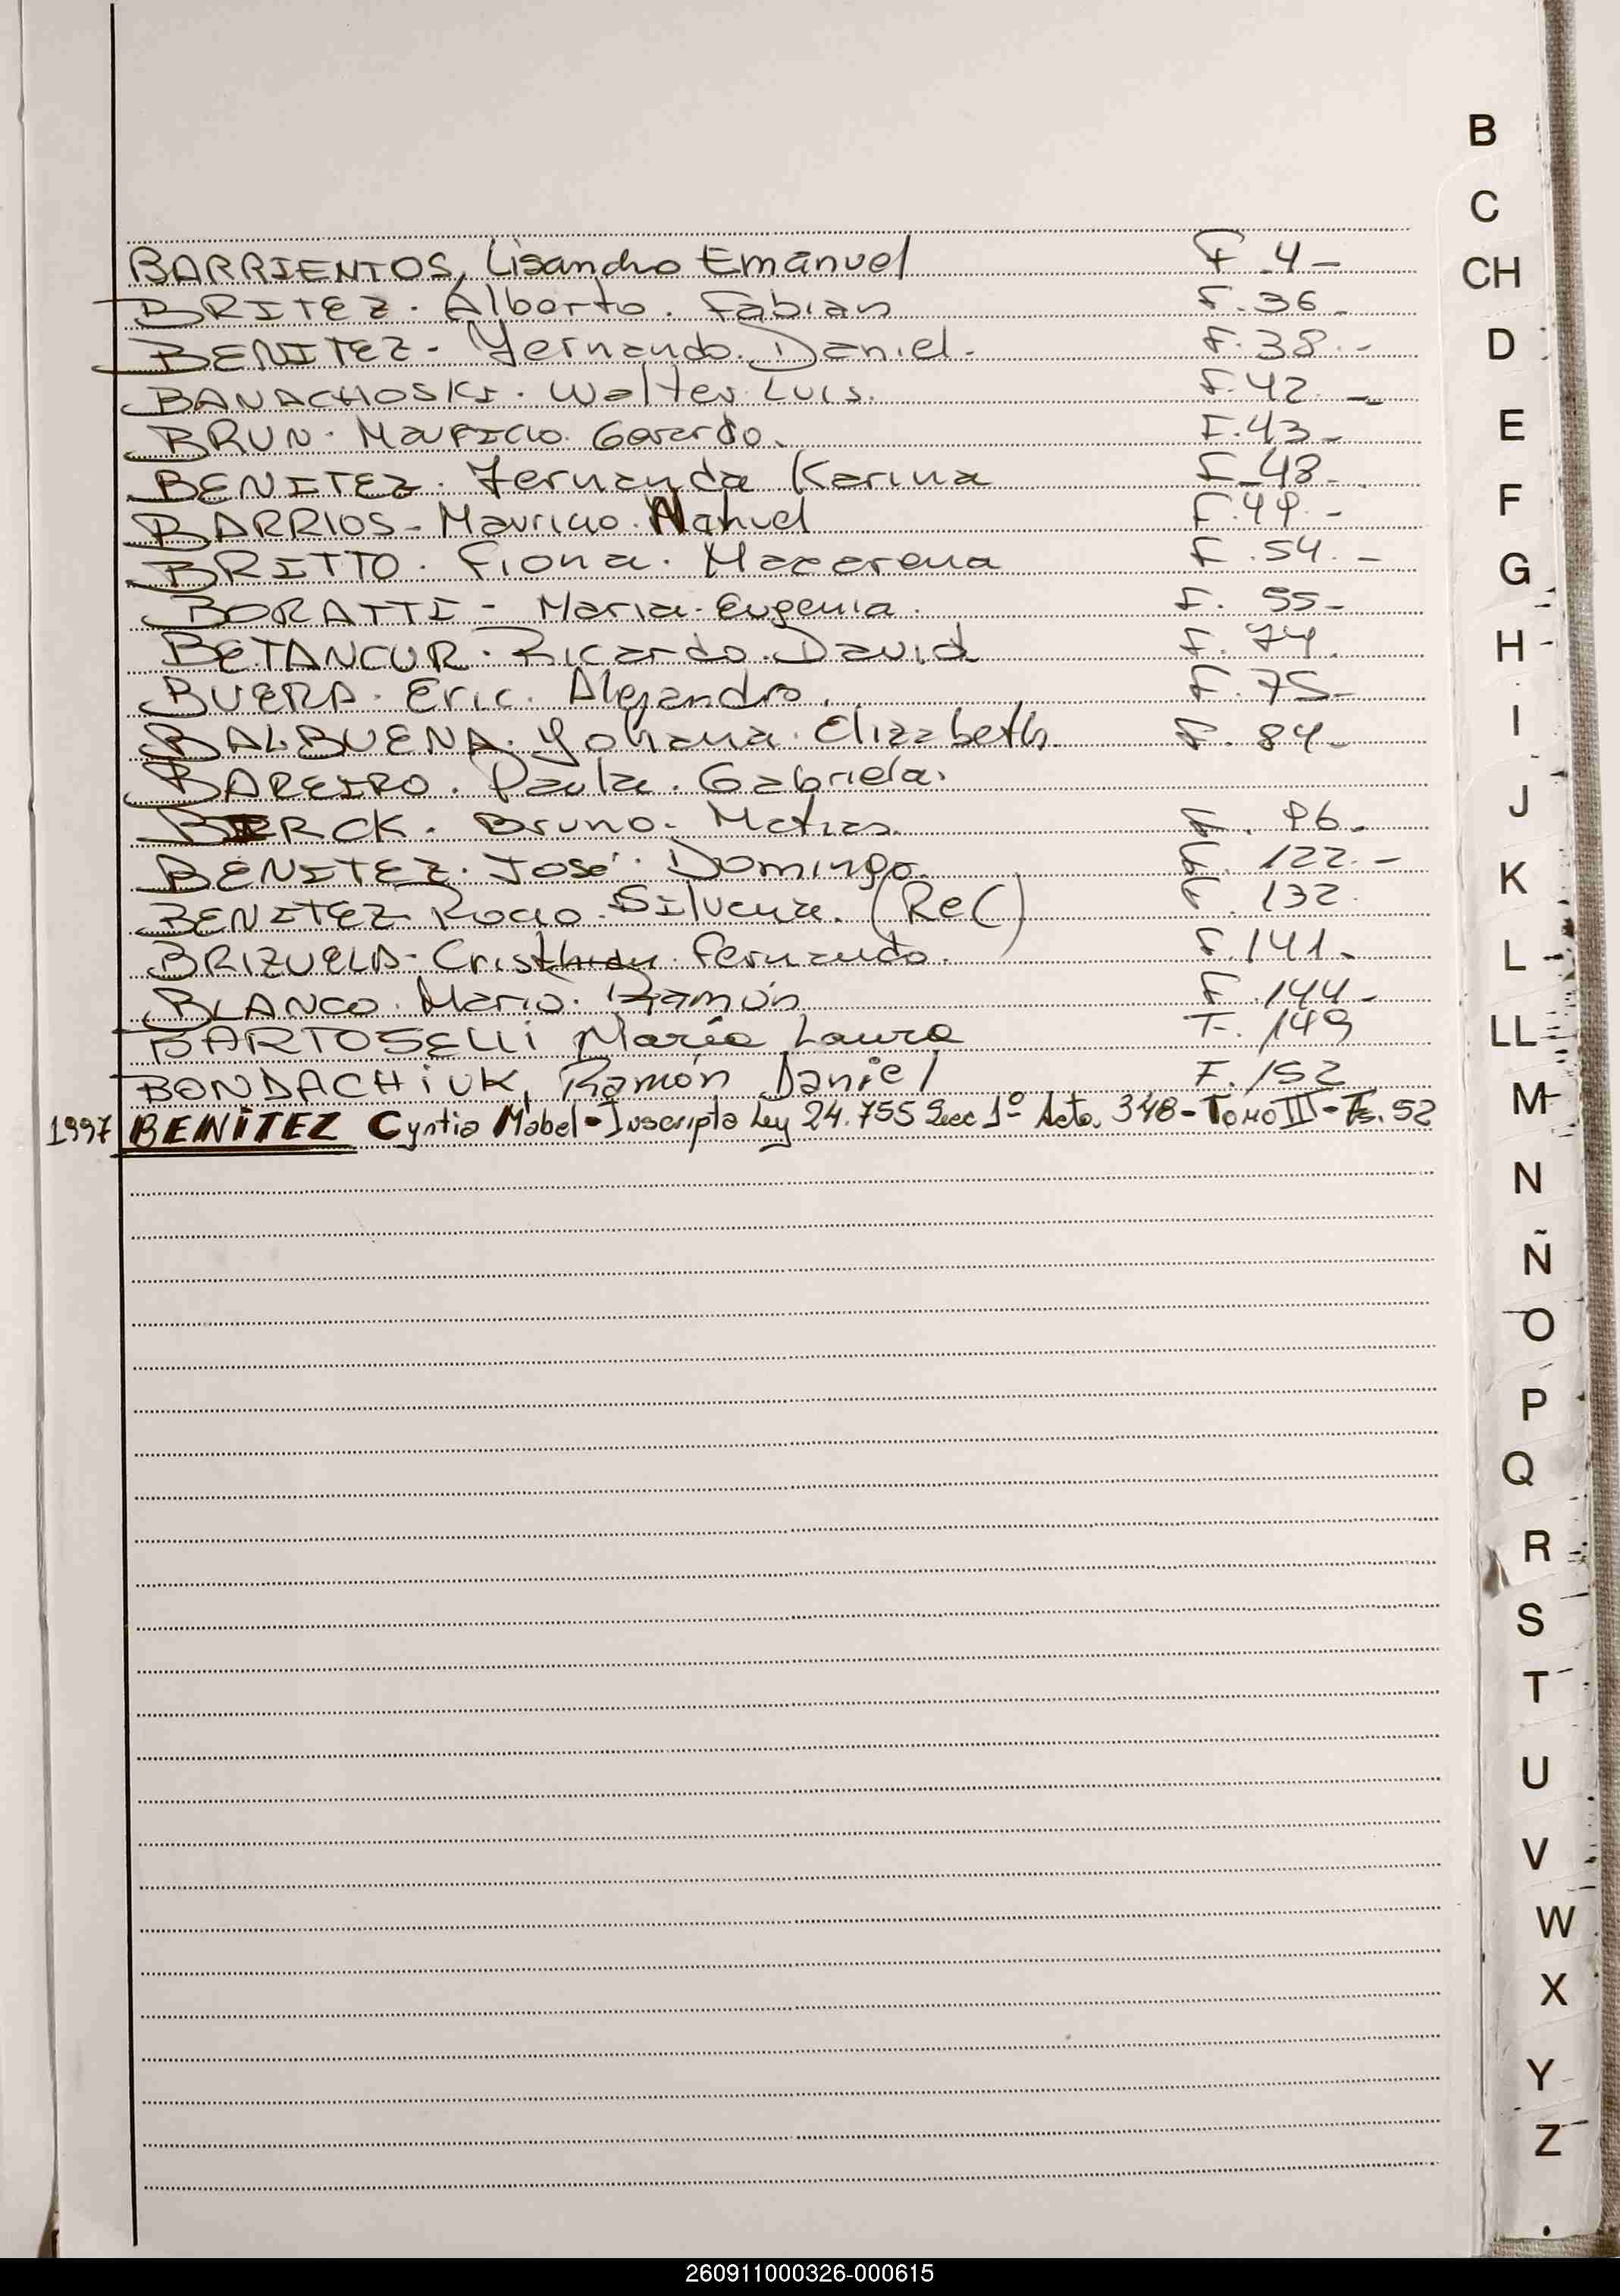 BARRIENTOS, Lisandro Emanuel F. 4-
BRITEZ. Alberto. Fabian F. 36-
BENITEZ- Fernando. Daniel. F. 38.-
BANACHOSKI. Walter Luis. F. 42.-
BRUN. Mauricio. Gerardo. F. 43-
BENITEZ. Fernanda Karina F. 48-
BARRIOS- Mauricio. Nahuel F. 49.-
BRITTO. Fiona. Macarena F. 54.-
BORATTI- Maria. Eugenia. F. 55-
BETANCUR. Ricardo. David F. 74.
BUERA. Eric. Alejandro. F. 75-
BALBUENA. Yohana. Elizabeth. F. 84-
BAREIRO. Paula. Gabriela.
BERCK. Bruno. Matias. F. 96.
BENITEZ. José. Domingo. F. 122.-
BENITEZ Rocio. Silvana. (Rec) F. 132.
BRIZUELA- Cristhian. Fernando. F. 141.
BLANCO. Mario. Ramón F. 144-
BARTOSELLi María Laura F. 149
BONDACHiUK, Ramón Daniel F. 152
1997 BENíTEZ Cyntia Mabel- Inscripta Ley 24.755 Secc 1º Acta. 348- Tomo III- Fs. 52
B
C
CH
D
E
F
G
H
I
J
K
L
LL
M
N
Ñ
O
P
Q
R
S
T
U
V
W
X
Y
Z
260911000326-000615